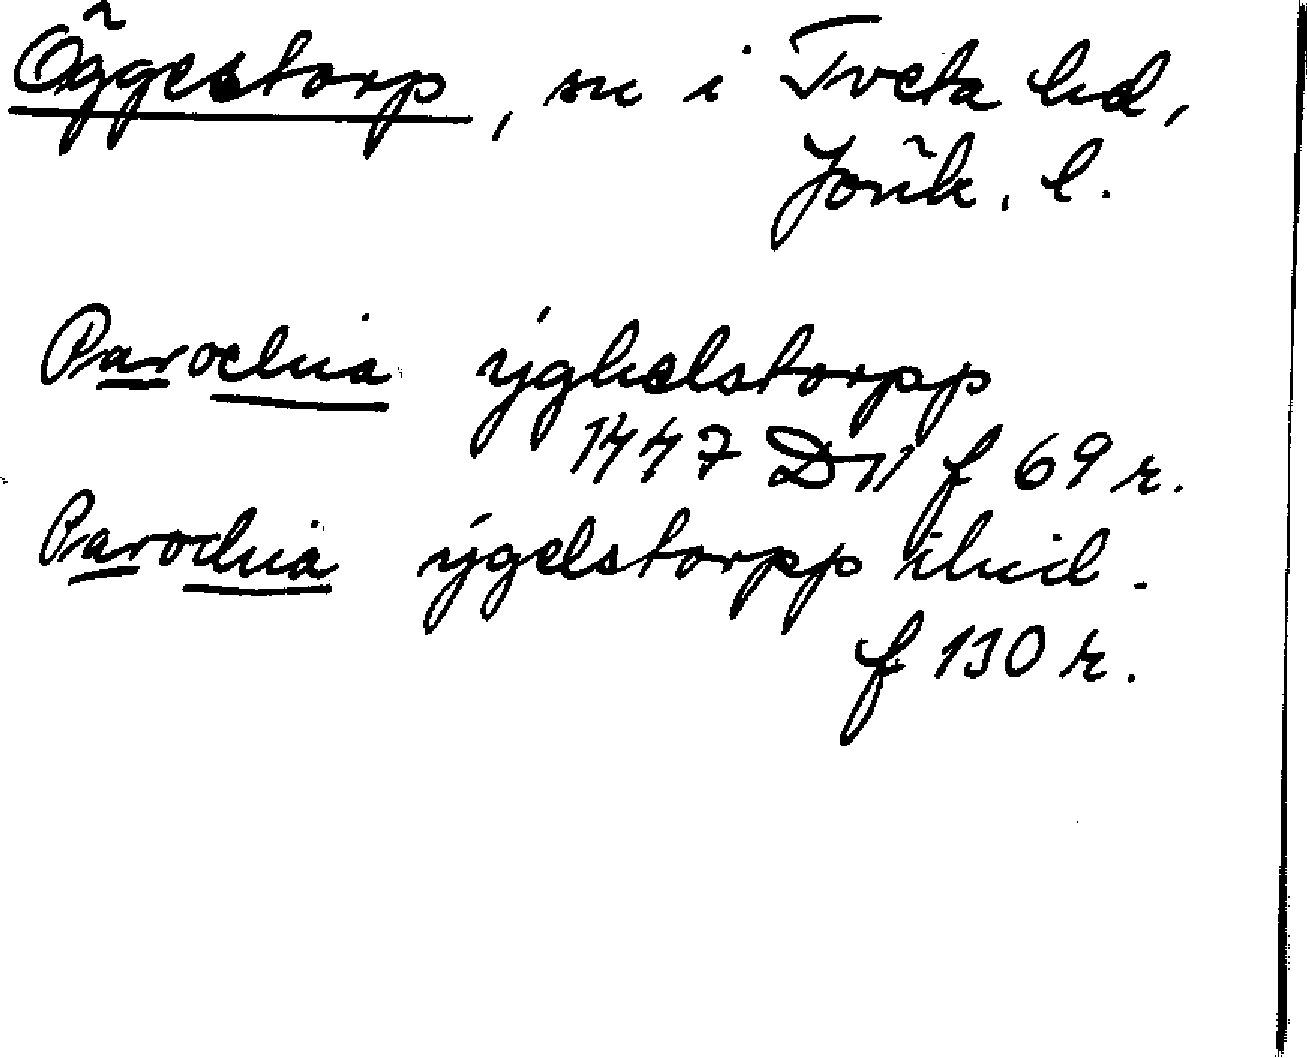 Öggestorp, sn i Tveta hd,
Jönk. l.
Parochia ýghelstorpp
1447 D 11 f 69 r.
Parochia ýgelstorpp ibid.
f 130 r.